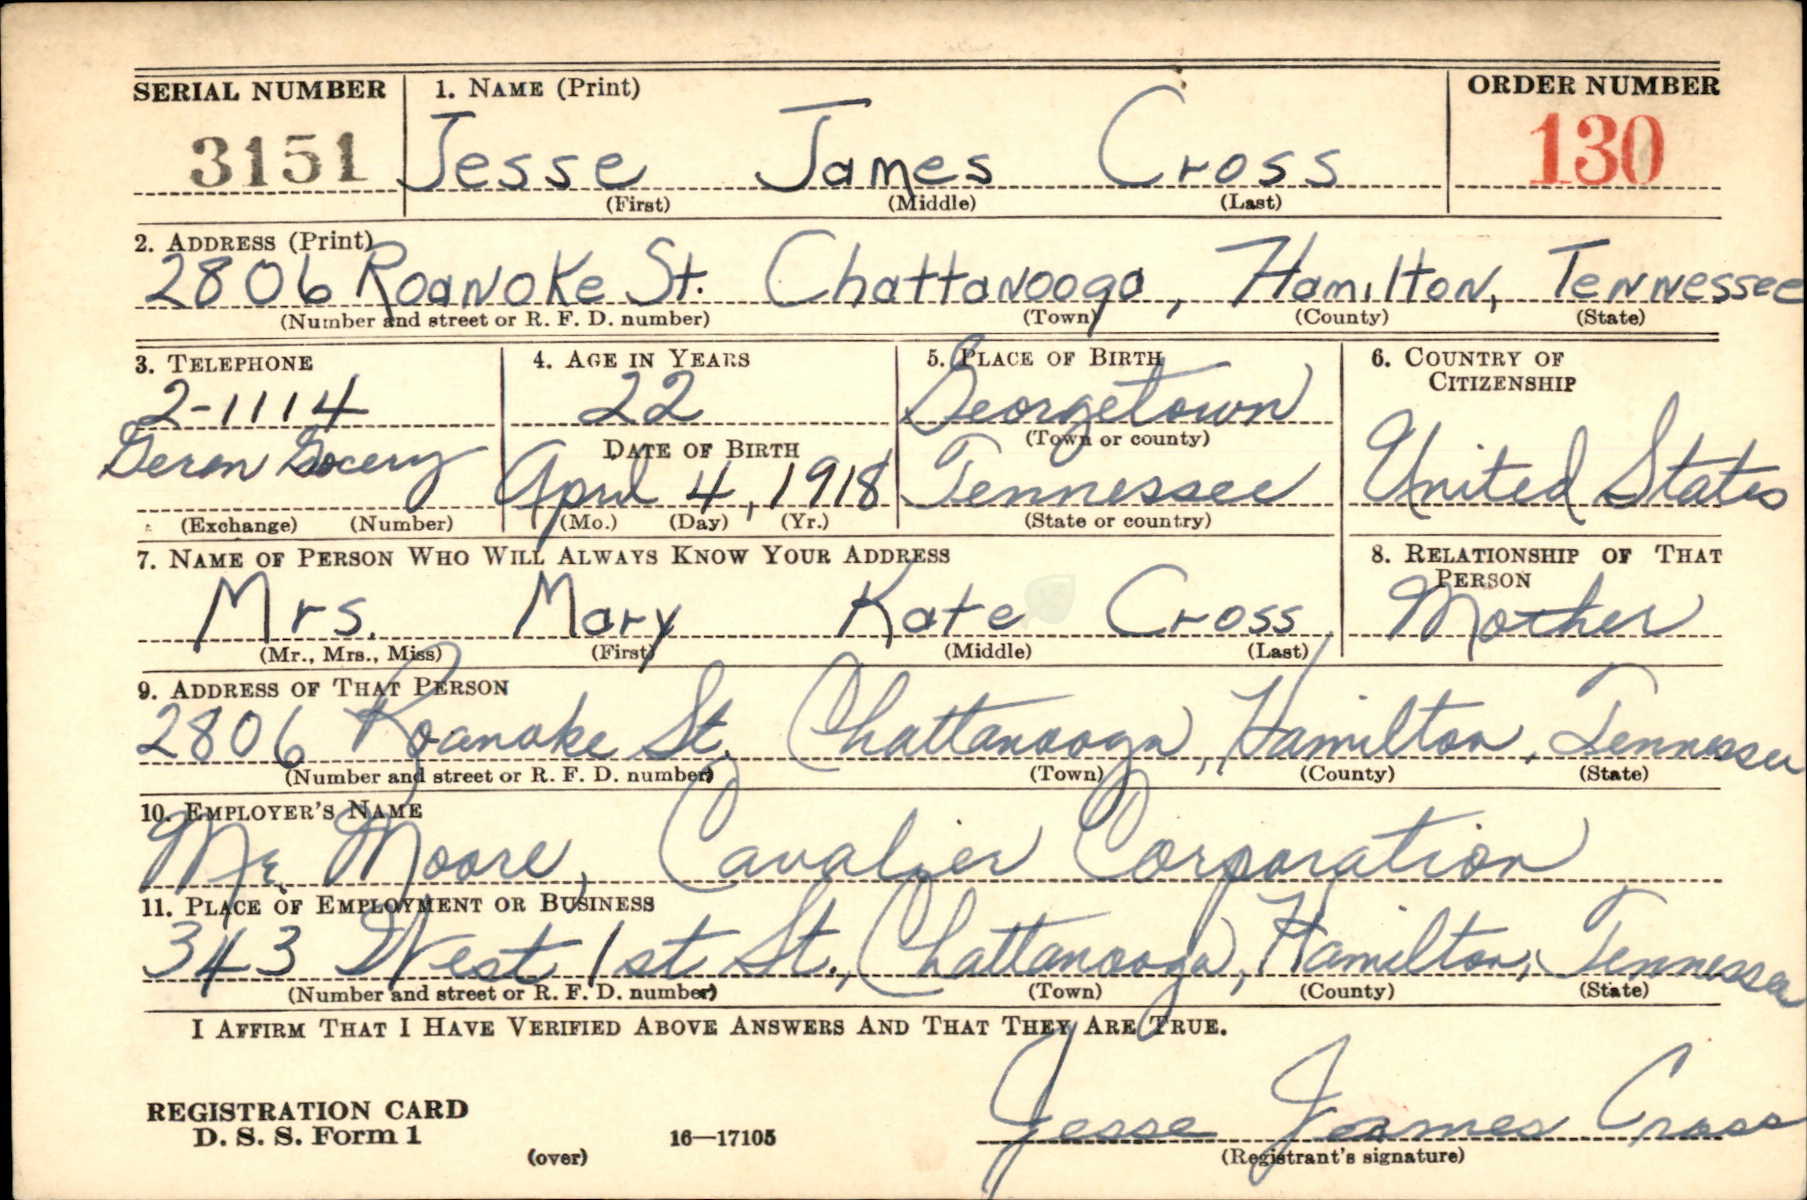 SERIAL NUMBER 1. NAME (Print) ORDER NUMBER
3151 Jesse James Cross 130
(First) (Middle) (Last)
2. ADDRESS (Print)
2806 Roanoke St. Chattanooga, Hamilton, Tennessee
(Number and street or R. F. D. number) (Town) (County) (State)
3. TELEPHONE 4. AGE IN YEARS 5. PLACE OF BIRTH 6. COUNTRY OF
CITIZENSHIP
2-1114 22 Georgetown
DATE OF BIRTH (Town or county)
Geren Gocery April 4, 1918 Tennessee United States
(Exchange) (Number) (Mo.) (Day) (Yr.) (State or country)
7. NAME OF PERSON WHO WILL ALWAYS KNOW YOUR ADDRESS 8. RELATIONSHIP OF THAT
PERSON
Mrs. Mary Kate Cross Mother
(Mr., Mrs., Miss) (First) (Middle) (Last)
9. ADDRESS OF THAT PERSON
2806 Roanoke St. Chattanooga, Hamilton, Tennessee
(Number and street or R. F. D. number) (Town) (County) (State)
10. EMPLOYER'S NAME
Mr. Moore, Cavalier Corporation
11. PLACE OF EMPLOYMENT OR BUSINESS
343 West 1st St., Chattanooga, Hamilton, Tennessee
(Number and street or R. F. D. number) (Town) (County) (State)
I AFFIRM THAT I HAVE VERIFIED ABOVE ANSWERS AND THAT THEY ARE TRUE.
REGISTRATION CARD
D. S. S. Form 1 16—17105 Jesse James Cross
(over) (Registrant's signature)